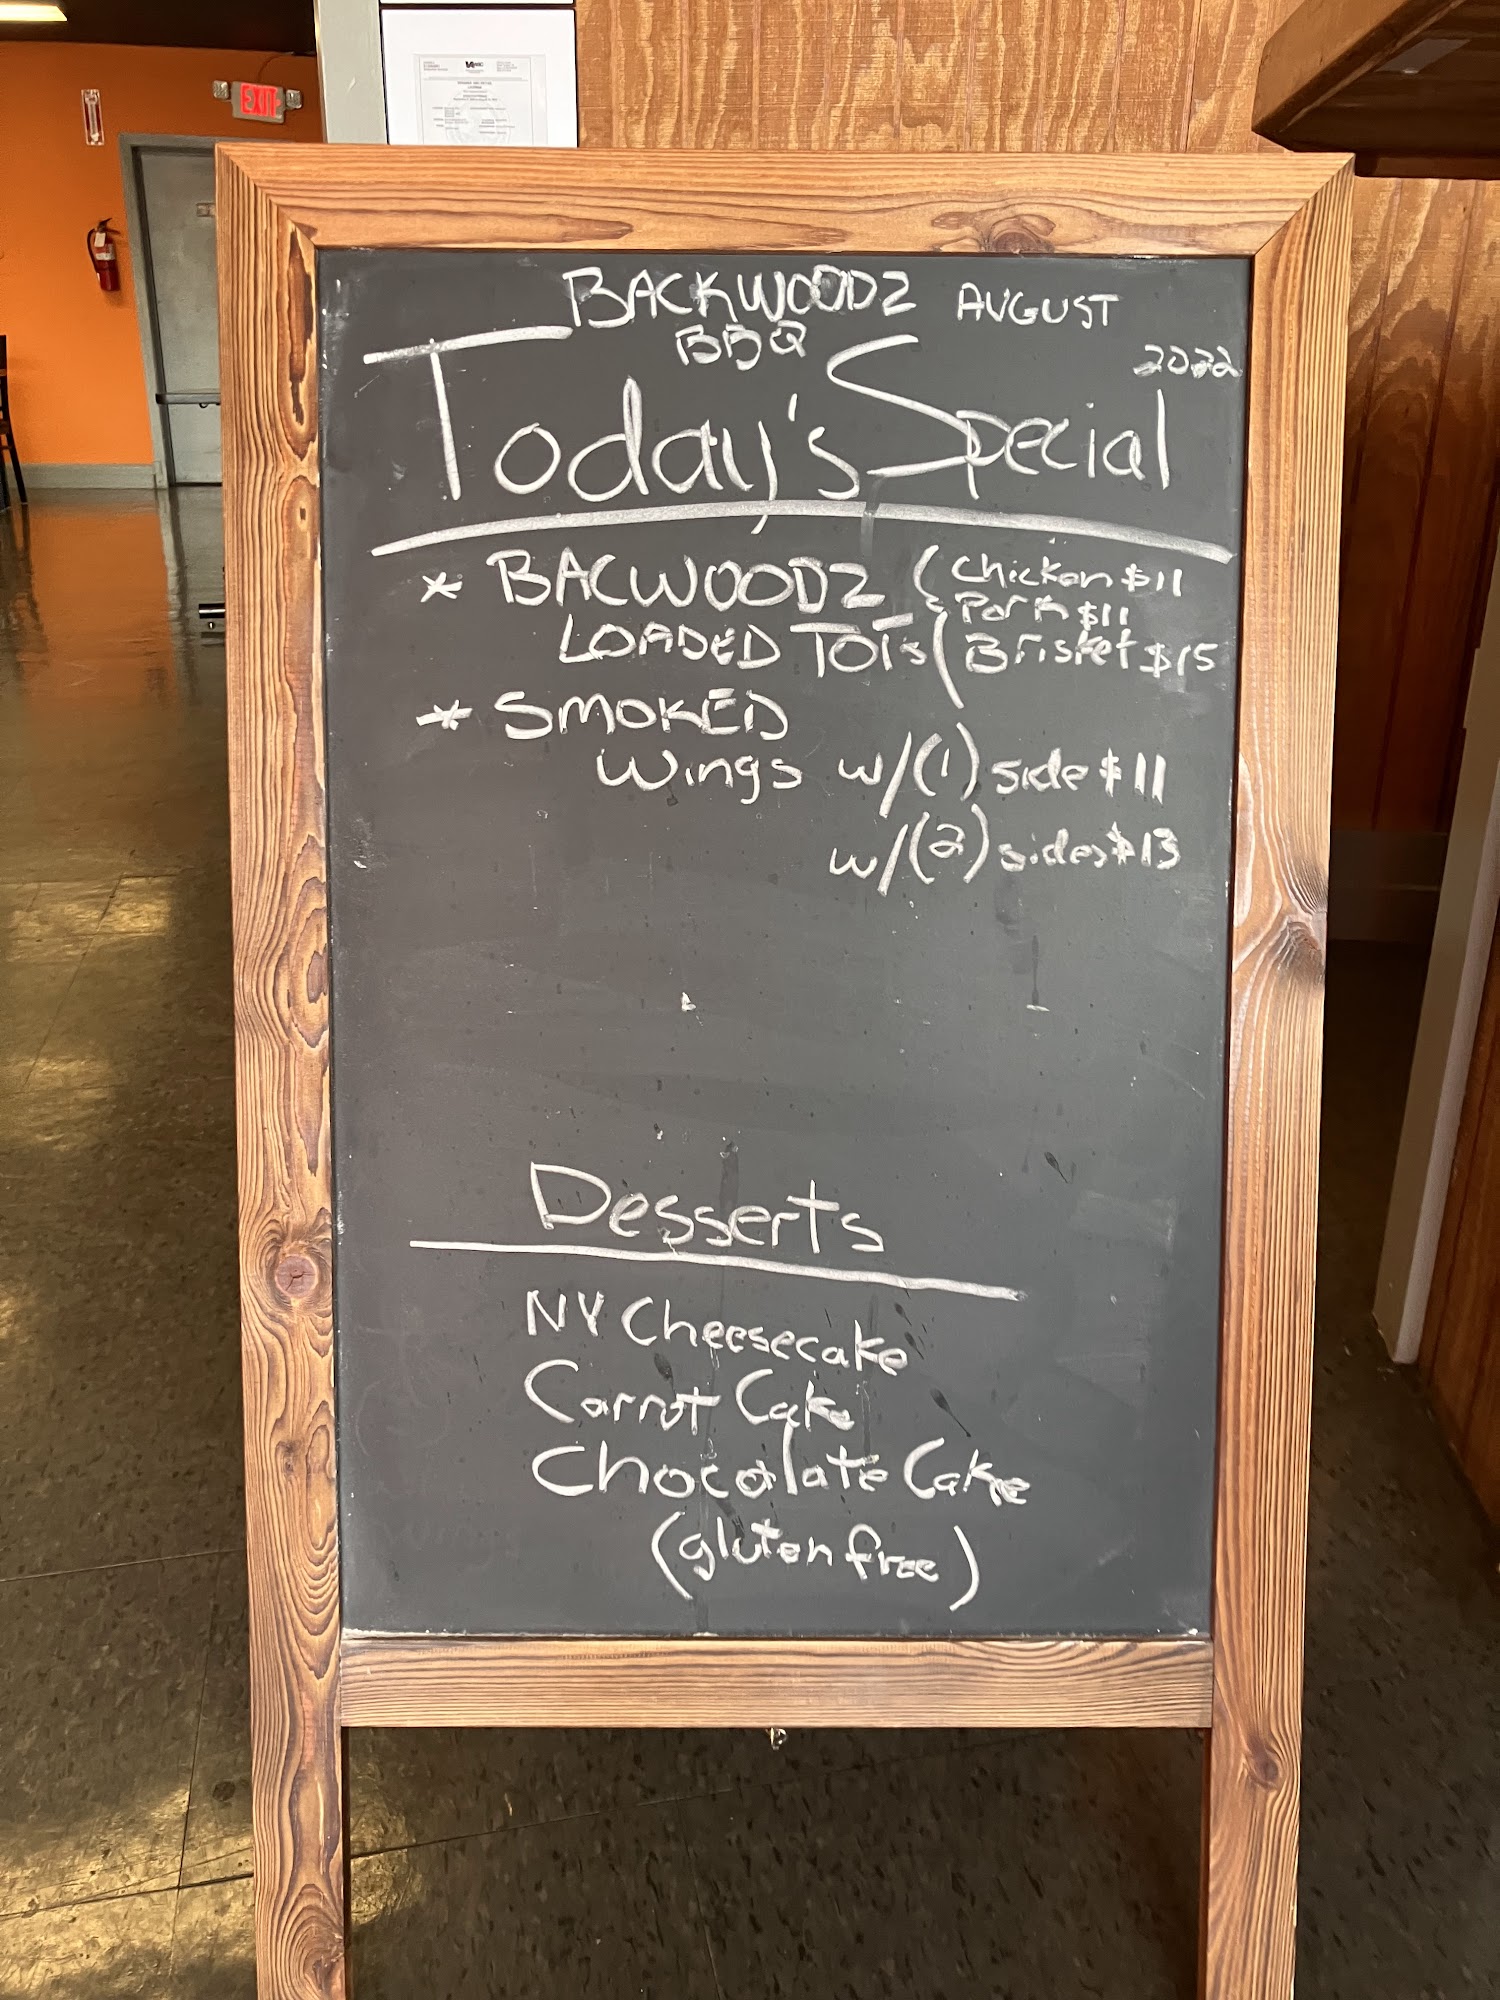 EXIT
BACKWOODZ AUGUST
BBQ 2022
Today's Special
* BACWOODZ { Chicken $11
Pork $11
LOADED TOTs Brisket $15
* SMOKED
Wings w/(1) side $11
w/(2) sides $13
Desserts
NY Cheesecake
Carrot Cake
Chocolate Cake
(gluten free)